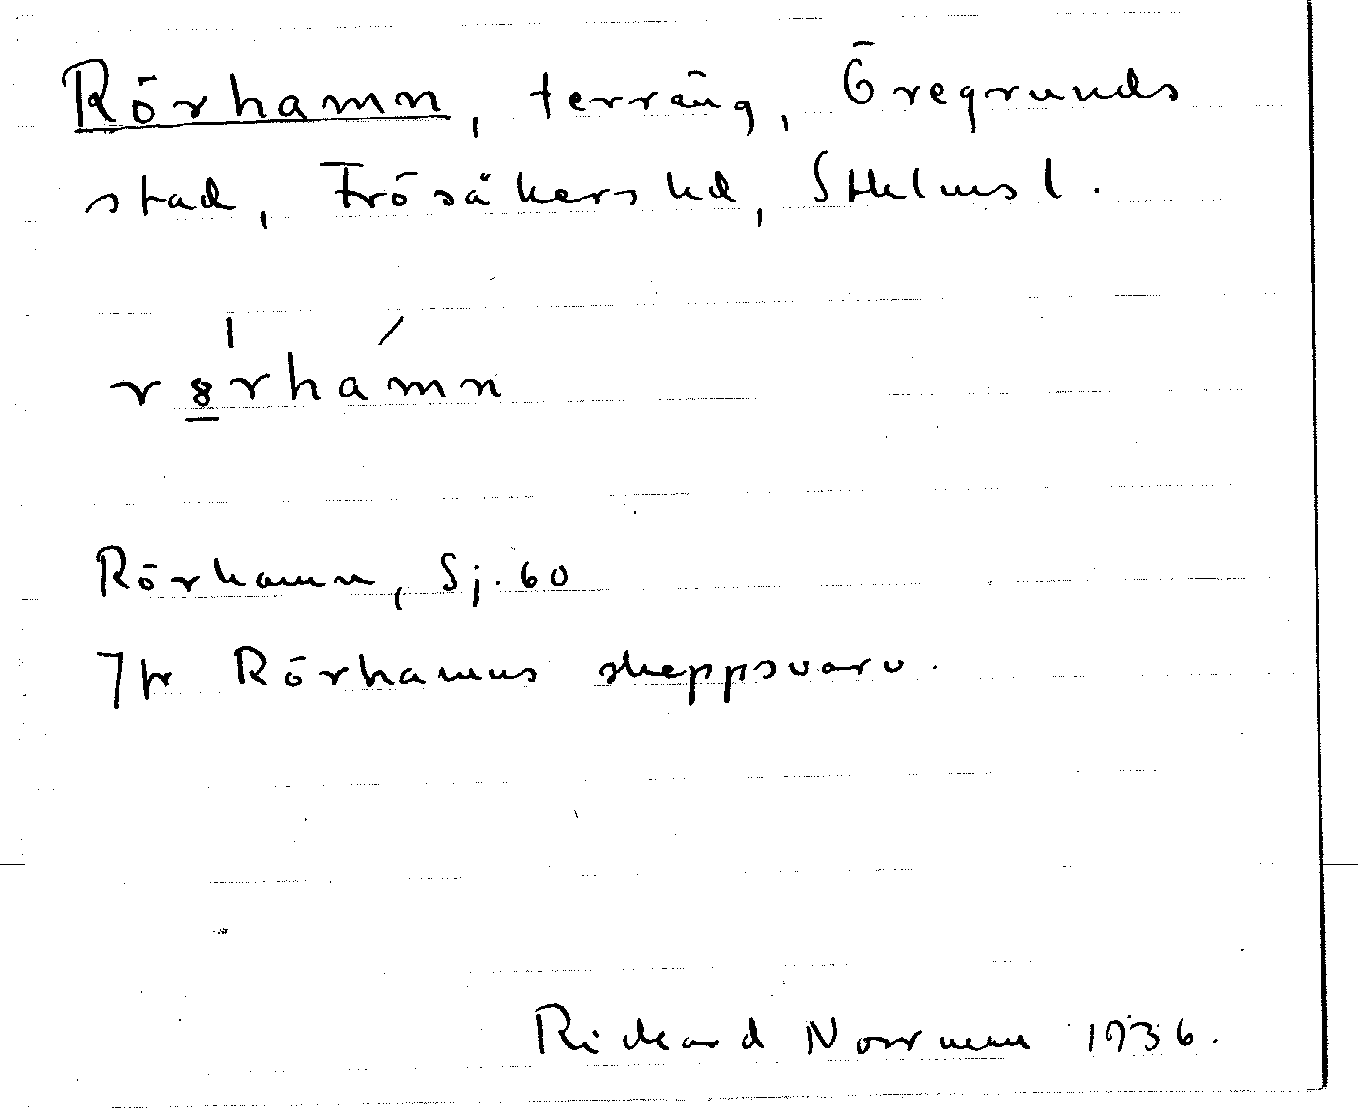 Rörhamn, terräng, Öregrunds
stad, Frösåkers hd, Sthlms l.
rȣrhamn
Rörhamn, Sj. 60
Jfr Rörhamns skeppsvarv.
Rickard Norrman 1936.